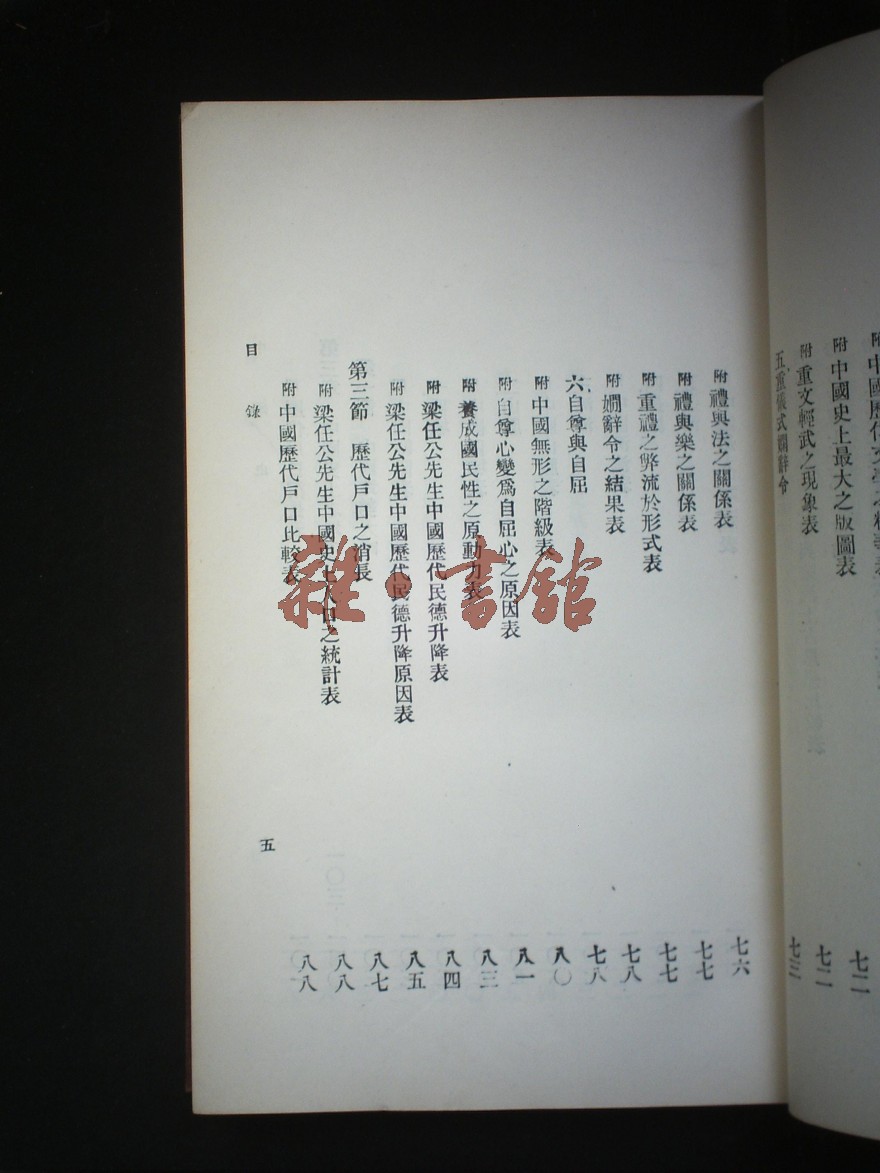 附 中國史上最大之版圖表 七二
附 重文輕武之現象表 七二
五、重儀式嫻辭令 七三
附 禮與法之關係表 七六
附 禮與樂之關係表 七七
附 重禮之弊流於形式表 七七
附 嫻辭令之結果表 七八
六、自尊與自屈 七八
附 中國無形之階級表 八〇
附 自尊心變爲自屈心之原因表 八一
附 養成國民性之原動力表 八三
附 梁任公先生中國歷代民德升降表 八四
附 梁任公先生中國歷代民德升降原因表 八五
第三節 歷代戶口之消長 八七
附 梁任公先生中國史上人口之統計表 八八
附 中國歷代戶口比較表 八八
目 錄
五
雜·書館